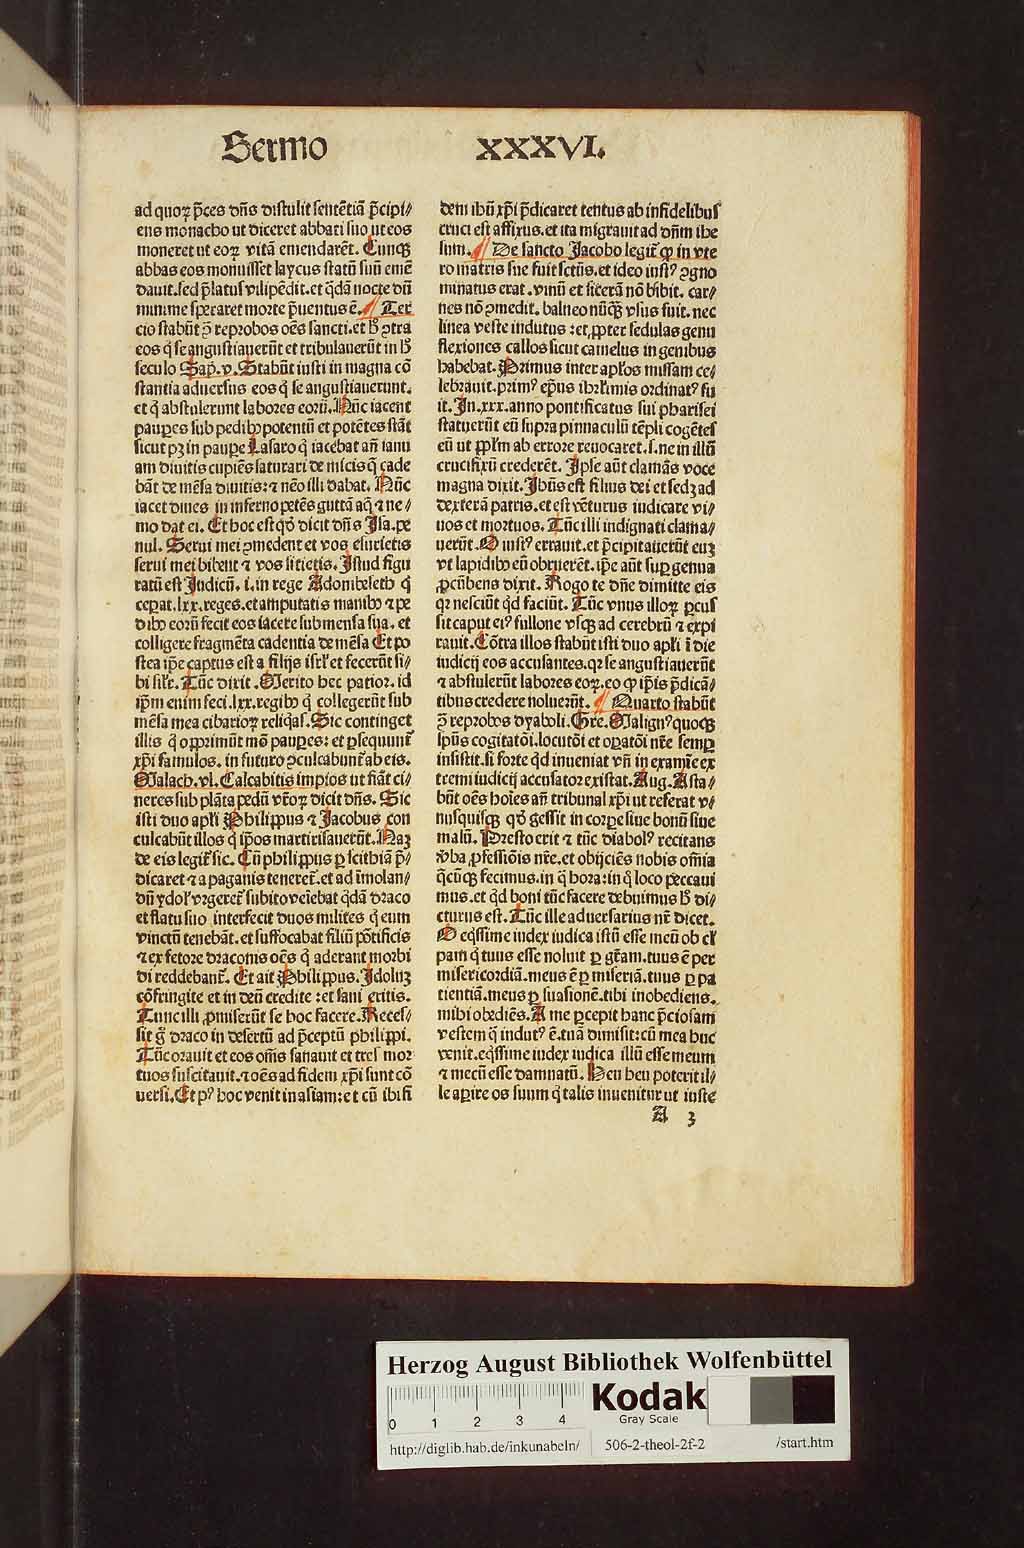 Sermo XXXVI.
ad quoꝝ p̄ces dn̄s distulit sentētiā p̄cipi⸗
ens monacho ut diceret abbati suo ut eos
moneret ut eoꝝ vitā emendarēt. Cunqꝫ
abbas eos monuisset laycus statū suū emē
dauit. sed p̄latus vilipēdit. et q̄dā nocte dū
minime speraret morte p̄uentus ē. ¶ Ter
cio stabūt ꝯ̄ reprobos oēs sancti. et hi ꝯtra
eos q̇ se angustiauerūt et tribulauerūt in hͦ
seculo Sap̄. v. Stabūt iusti in magna cō
stantia aduersus eos q̇ se angustiauerunt.
et q̇ abstulerunt labores eorū. Nūc iacent
pauꝑes sub pedibꝫ potentū et potētes stāt
sicut pꝫ in pauꝑe Lasaro q̇ iacebat an̄ ianu
am diuitis cupiēs saturari de micis q̄ cade
bāt de mēsa diuitis: ⁊ nēo illi dabat. Nūc
iacet diues in inferno petēs guttā aq̄ ⁊ ne⸗
mo dat ei. Et hoc est qd̓ dicit dn̄s Isa. pe
nul. Serui mei ꝯmedent et vos esurietis
serui mei bibent ⁊ vos sitietis. Istud figu
ratū est Judicū. i. in rege Adonibeseth q̇
ceꝑat. lxx. reges. et amputatis manibꝫ ⁊ pe
dibꝫ eorū fecit eos iacere sub mensa sua. et
colligere fragmēta cadentia de mēsa Et po
stea ip̄e captus est a filijs isrl̓ et fecerūt si⸗
bi sil̓r. Tūc dixit. Merito hec patior. id
ip̄m enim feci. lxx. regibꝫ q̇ collegerūt sub
mēsa mea cibarioꝝ reliq̇as. Sic continget
illis q̇ opprimūt mō pauꝑes: et ꝑsequunt᷑
xp̄i famulos. in futuro ꝯculcabunt᷑ ab eis.
Malach. vl. Calcabitis impios ut fiāt ci⸗
neres sub plāta pedū vr̄oꝝ dicit dn̄s. Sic
isti duo apl̓i Philippus ⁊ Jacobus con
culcabūt illos q̇ ip̄os martirisauerūt. Naꝫ
de eis legit᷑ sic. Cū philippus ꝑ scithiā p̄⸗
dicaret ⁊ a paganis teneret᷑. et ad īmolan⸗
dū ydol̓ vrgeret᷑ subito veīebat q̇dā draco
et flatu suo interfecit duos milites q̇ eum
vinctū tenebāt. et suffocabat filiū pōtificis
⁊ ex fetore draconis oēs q̇ aderant morbi
di reddebant᷑. Et ait Philippus. Idoluꝫ
cōfringite et in deū credite: et sani eritis.
Tunc illi ꝓmiserūt se hoc facere. Reces⸗
sit gͦ draco in desertū ad p̄ceptū philippi.
Tūc orauit et eos om̄s sanauit et tres mor
tuos suscitauit. ⁊ oēs ad fidem xp̄i sunt cō
uersi. Et pꝰ hoc venit in asiam: et cū ibi fi
dem ihū xp̄i p̄dicaret tentus ab infidelibus
cruci est affixus. et ita migrauit ad dn̄m ihe
sum. ¶ De sancto Jacobo legit᷑ ꝙ in vte
ro matris sue fuit sctūs. et ideo iustꝰ ꝯgno
minatus erat. vinū et sicerā nō bibit. car⸗
nes nō ꝯmedit. balneo nūq̄ꝫ vsus fuit. nec
linea veste indutus: et ꝓpter sedulas genu
flexiones callos sicut camelus in genibus
habebat. Primus inter apl̓os missam ce⸗
lebrauit. primꝰ ep̄us ihrl̓imis ordinatꝰ fu
it. In .xxx. anno pontificatus sui pharisei
statuerūt eū supra pinnaculū tēpli cogētes
eū ut ppl̓m ab errore reuocaret. s. ne in illū
crucifixū crederēt. Ipse aūt clamās voce
magna dixit. Ihūs est filius dei et sedꝫ ad
dexterā patris. et est vēturus iudicare vi⸗
uos et mortuos. Tūc illi indignati clama⸗
uerūt. O iustꝰ errauit. et p̄cipitauerūt euꝫ
vt lapidibꝫ eū obruerēt. ip̄e aūt suꝑ genua
ꝓcūbens dixit. Rogo te dn̄e dimitte eis
qꝛ nesciūt qd̓ faciūt. Tūc vnus illoꝝ ꝑcus
sit caput eiꝰ fullone vsqꝫ ad cerebrū ⁊ expi
rauit. Cōtra illos stabūt isti duo apl̓i ī die
iudicij eos accusantes. qꝛ se angustiauerūt
⁊ abstulerūt labores eoꝝ. eo ꝙ ip̄is p̄dicā⸗
tibus credere noluerūt. ¶ Quarto stabūt
ꝯ̄ reprobos dyaboli. Gre. Malignꝰ quoqꝫ
sp̄us cogitatōi. locutōi et oꝑatōi nr̄e semꝑ
insistit. si forte qd̓ inueniat vn̄ in examīe ex
tremi iudicij accusator existat. Aug. Asta⸗
būt oēs hoīes an̄ tribunal xp̄i ut referat v⸗
nusquisqꝫ qd̓ gessit in corꝑe siue bonū siue
malū. Presto erit ⁊ tūc diabolꝰ recitans
v̓ba ꝓfessiōis nr̄e. et obijciēs nobis om̄ia
q̄cūqꝫ fecimus. in q̇ hora: in q̇ loco peccaui
mus. et qd̓ boni tūc facere debuimus hͦ di⸗
cturus est. Tūc ille aduersarius nr̄ dicet.
O eq̇ssime iudex iudica istū esse meū ob cl̓
pam q̇ tuus esse noluit ꝑ gr̄am. tuus ē per
misericordiā. meus ē ꝑ miseriā. tuus ꝑ pa
tientiā. meus ꝑ suasionē. tibi inobediens.
mihi obediēs. A me ꝑcepit hanc p̄ciosam
vestem q̇ indutꝰ ē. tuā dimisit: cū mea huc
venit. eq̇ssime iudex iudica illū esse meum
⁊ mecū esse damnatū. Heu heu poterit il⸗
le aꝑire os suum q̇ talis inuenitur ut iuste
A 3
Herzog August Bibliothek Wolfenbüttel
0 1 2 3 4
Kodak
Gray Scale
http://diglib.hab.de/inkunabeln/ 506-2-theol-2f-2 /start.htm